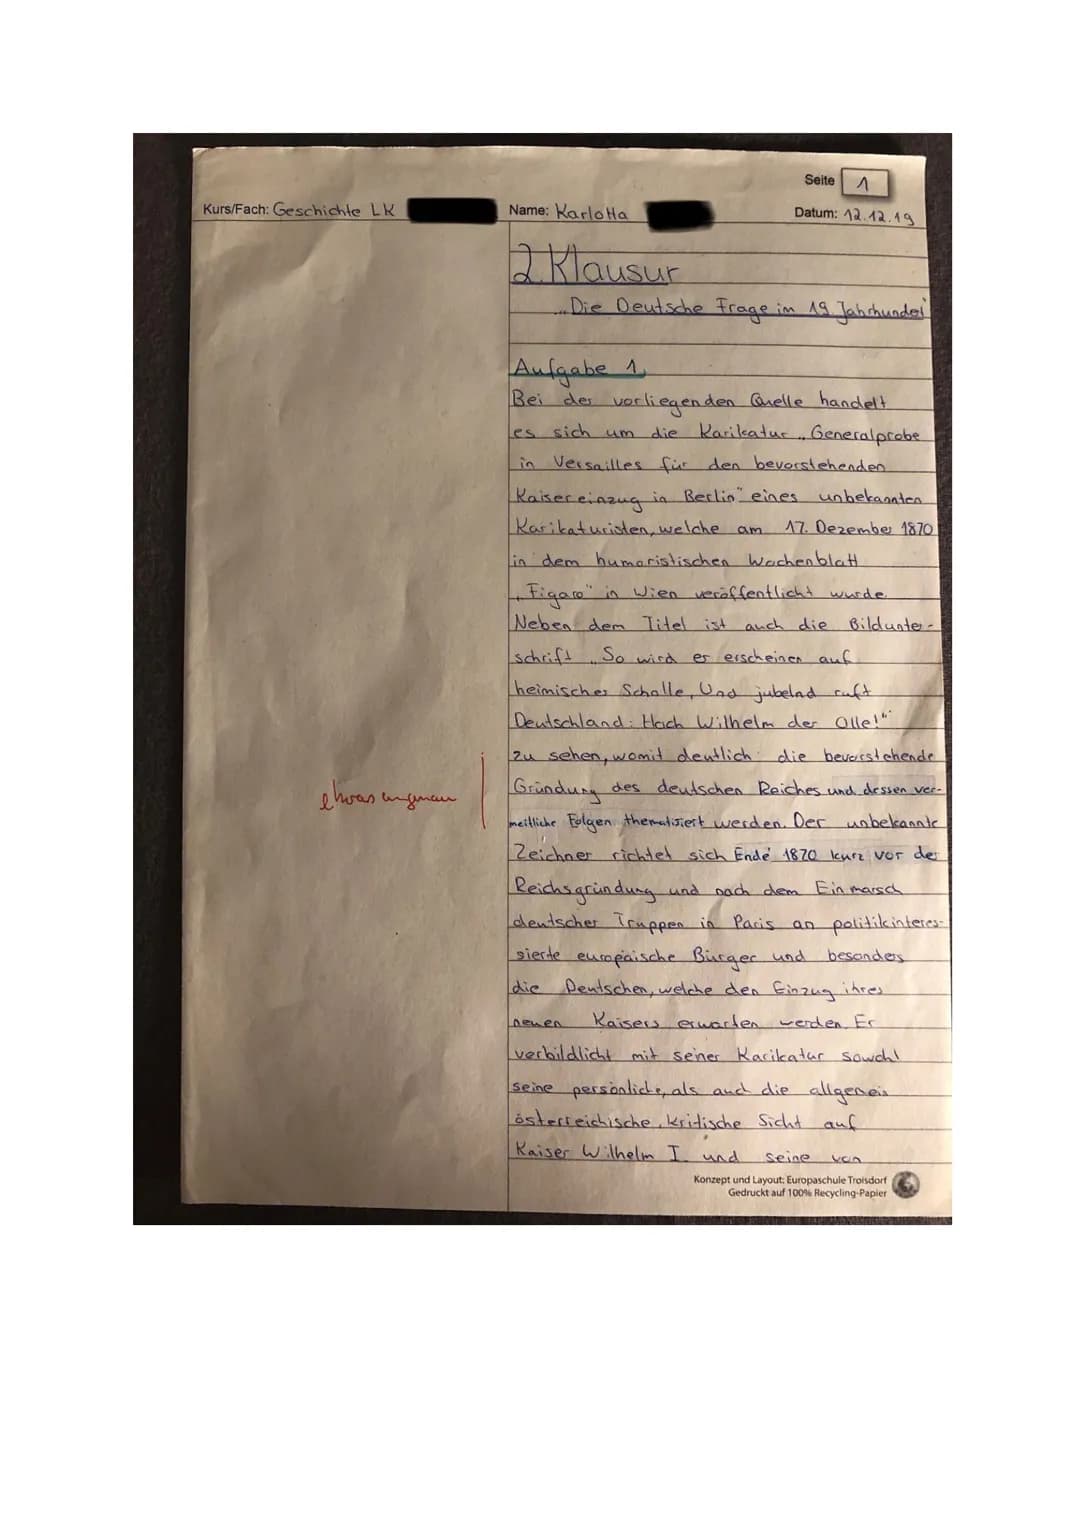 Seite 1
Kurs/Fach: Geschichte LK Name: Karlotta Datum: 12.12.19
2. Klausur
„Die Deutsche Frage im 19. Jahrhundert
Aufgabe 1
Bei der vorliegenden Quelle handelt
es sich um die Karikatur „Generalprobe
in Versailles für den bevorstehenden
Kaisereinzug in Berlin" eines unbekannten
Karikaturisten, welche am 17. Dezember 1870
in dem humoristischen Wochenblatt
„Figaro" in Wien veröffentlicht wurde.
Neben dem Titel ist auch die Bildunter-
schrift „So wird er erscheinen auf
heimischer Scholle, Und jubelnd ruft
Deutschland: Hoch Wilhelm der Olle!"
zu sehen, womit deutlich die bevorstehende
etwas ungenau
Gründung des deutschen Reiches und dessen ver-
meitliche Folgen thematisiert werden. Der unbekannte
Zeichner richtet sich Ende 1870 kurz vor der
Reichsgründung und nach dem Einmarsch
deutscher Truppen in Paris an politikinteres-
sierte europäische Bürger und besonders
die Deutschen, welche den Einzug ihres
neuen Kaisers erwarten werden. Er
verbildlicht mit seiner Karikatur sowohl
seine persönliche, als auch die allgemein
österreichische, kritische Sicht auf
Kaiser Wilhelm I. und seine von
Konzept und Layout: Europaschule Troisdorf
Gedruckt auf 100% Recycling-Papier